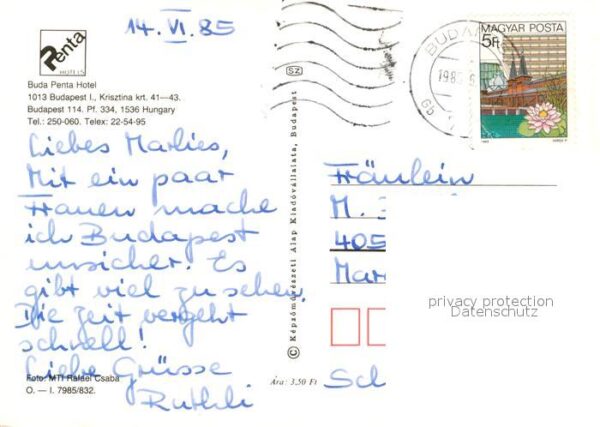 14. VI. 85
Penta
HOTELS
Buda Penta Hotel
1013 Budapest I., Krisztina krt. 41—43.
Budapest 114. Pf. 334, 1536 Hungary
Tel.: 250-060. Telex: 22-54-95
Liebes Marlies,
Mit ein paar
Frauen mache
ich Budapest
unsicher. Es
gibt viel zu sehen.
Die Zeit vergeht
schnell!
Liebe Grüsse
Ruthli
Foto: MTI Rafael Csaba
O. — I. 7985/832.
SZ
© Képzőművészeti Alap Kiadóvállalata, Budapest
Ára: 3,50 Ft
BUDA
1985
MAGYAR POSTA
5Ft
Fräulein
M.
405
Mar
Sch
privacy protection
Datenschutz